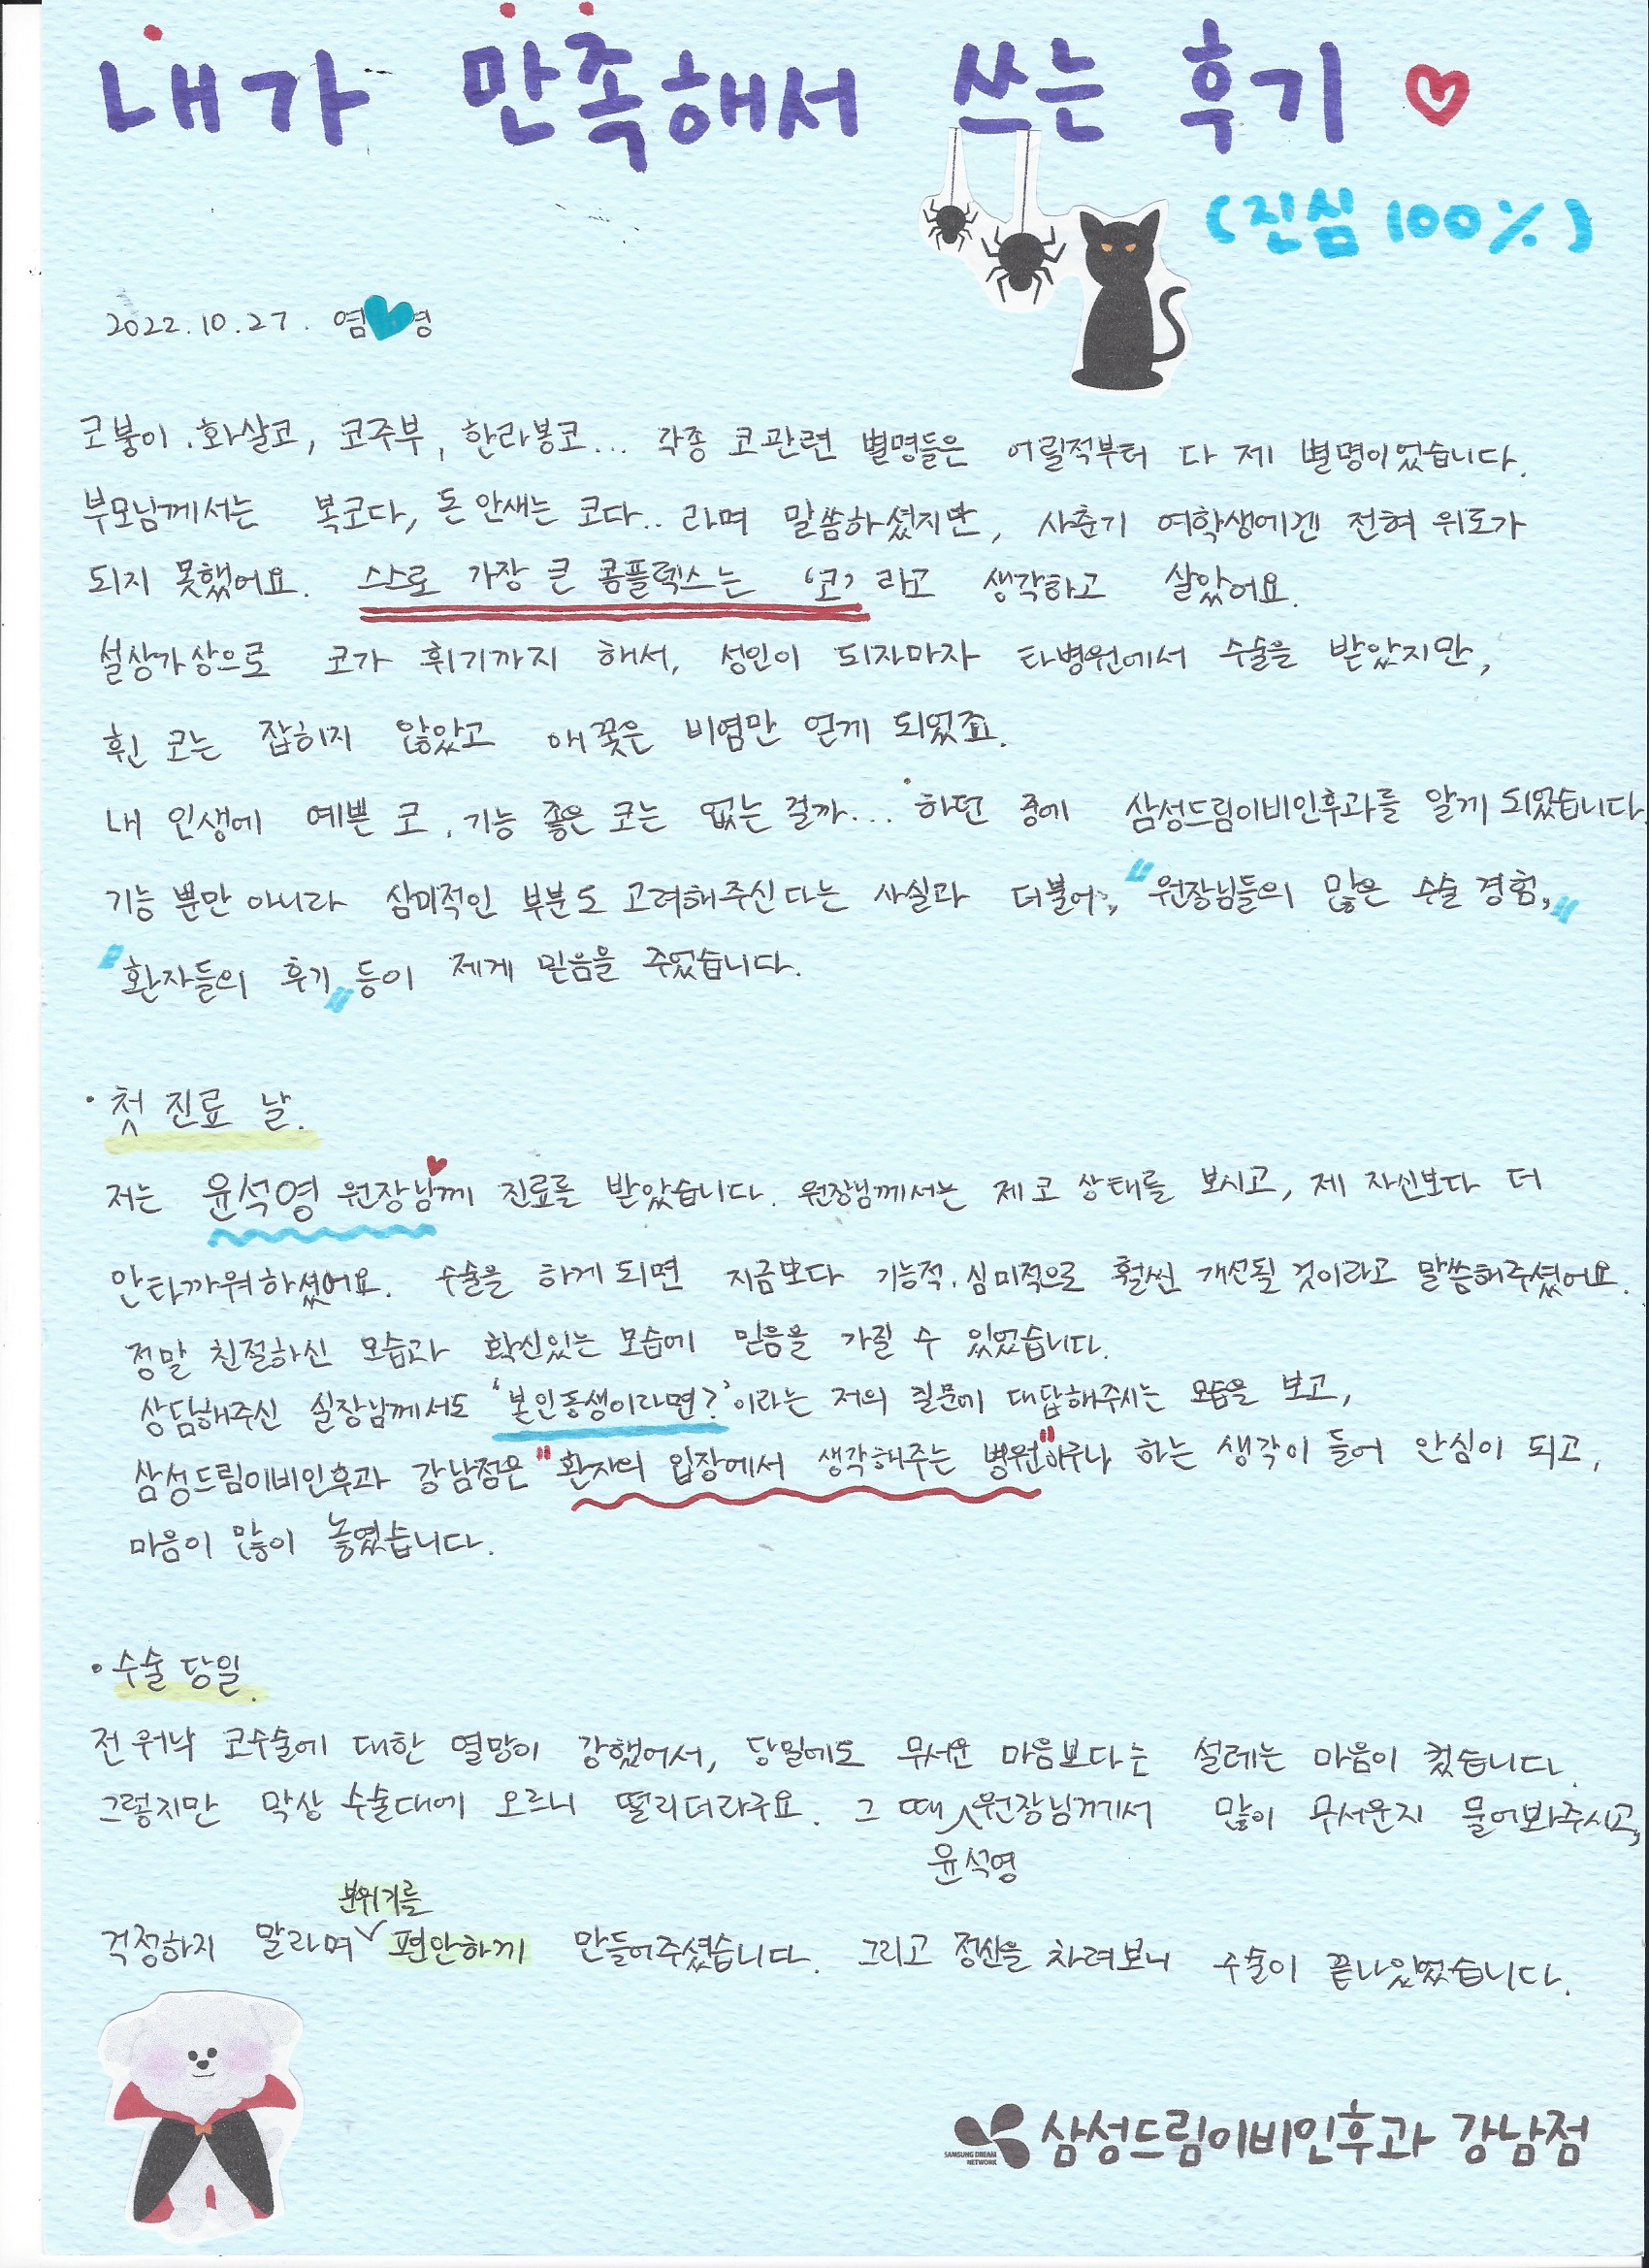 내가 만족해서 쓰는 후기
(진심 100%)
2022.10.27. 염 영
코붕이, 화살코, 코주부, 한라봉코... 각종 코관련 별명들은 어릴적부터 다 제 별명이었습니다.
부모님께서는 복코다, 돈 안새는 코다.. 라며 말씀하셨지만, 사춘기 여학생에겐 전혀 위로가
되지 못했어요. 스스로 가장 큰 콤플렉스는 '코' 라고 생각하고 살았어요.
설상가상으로 코가 휘기까지 해서, 성인이 되자마자 타병원에서 수술을 받았지만,
휜 코는 잡히지 않았고 애꿎은 비염만 얻게 되었죠.
내 인생에 예쁜 코, 기능 좋은 코는 없는 걸까... 하던 중에 삼성드림이비인후과를 알게 되었습니다.
기능 뿐만 아니라 심미적인 부분도 고려해주신다는 사실과 더불어, "원장님들의 많은 수술 경험,"
"환자들의 후기" 등이 제게 믿음을 주었습니다.
· 첫 진료 날.
저는 윤석영 원장님께 진료를 받았습니다. 원장님께서는 제 코 상태를 보시고, 제 자신보다 더
안타까워하셨어요. 수술을 하게 되면 지금보다 기능적, 심미적으로 훨씬 개선될 것이라고 말씀해주셨어요.
정말 친절하신 모습과 확신있는 모습에 믿음을 가질 수 있었습니다.
상담해주신 실장님께서도 '본인동생이라면?' 이라는 저의 질문에 대답해주시는 모습을 보고,
삼성드림이비인후과 강남점은 "환자의 입장에서 생각해주는 병원"이구나 하는 생각이 들어 안심이 되고,
마음이 많이 놓였습니다.
· 수술 당일.
전 워낙 코수술에 대한 열망이 강했어서, 당일에도 무서운 마음보다는 설레는 마음이 컸습니다.
그렇지만 막상 수술대에 오르니 떨리더라구요. 그 때 원장님께서 많이 무서운지 물어봐주시고,
윤석영
분위기를
걱정하지 말라며 편안하게 만들어주셨습니다. 그리고 정신을 차려보니 수술이 끝나있었습니다.
SAMSUNG DREAM
NETWORK
삼성드림이비인후과 강남점